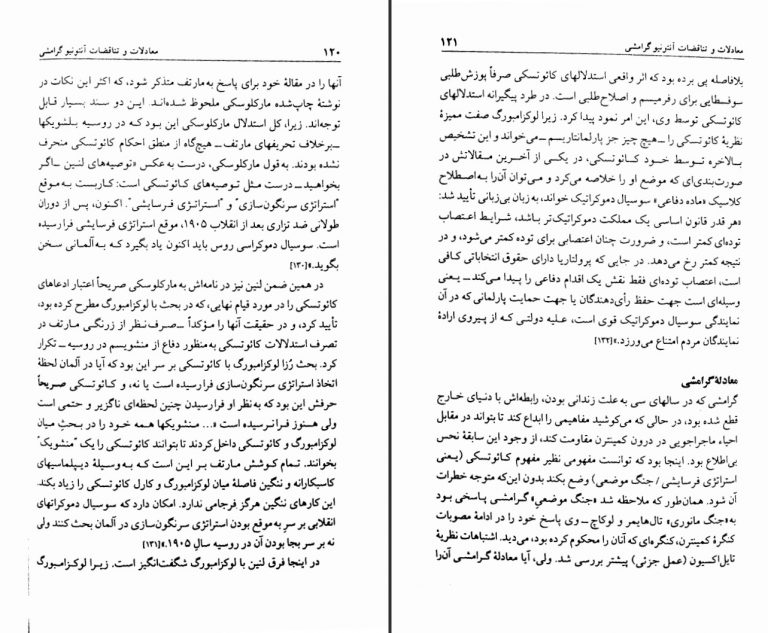 ۱۲۰ معادلات و تناقضات آنتونیو گرامشی
آنها را در مقالهٔ خود برای پاسخ به مارتف متذکر شود، که اکثر این نکات در
نوشتهٔ چاپ‌شده مارکلوسکی ملحوظ شده‌اند. این دو سند بسیار قابل
توجه‌اند. زیرا، کل استدلال مارکلوسکی این بود که در روسیه بلشویکها
ــ برخلاف تحریفهای مارتف ــ هیچ‌گاه از منطق احکام کائوتسکی منحرف
نشده بودند. به قول مارکلوسکی، درست به عکس «توصیه‌های لنین ــ اگر
بخواهید ــ درست مثل توصیه‌های کائوتسکی است: کاربست به موقع
"استراتژی سرنگون‌سازی" و "استراتژی فرسایشی". اکنون، پس از دوران
طولانی ضد تزاری بعد از انقلاب ۱۹۰۵، موقع استراتژی فرسایشی فرا رسیده
است. سوسیال دموکراسی روس باید اکنون یاد بگیرد که به آلمانی سخن
بگوید.»[۱۳۰]
در همین ضمن لنین نیز در نامه‌اش به مارکلوسکی صریحاً اعتبار ادعاهای
کائوتسکی را در مورد قیام نهایی، که در بحث با لوکزامبورگ مطرح کرده بود،
تأیید کرد، و در حقیقت آنها را مؤکداً ــ صرف‌نظر از زرنگی مارتف در
تصرف استدلالات کائوتسکی به منظور دفاع از منشویسم در روسیه ــ تکرار
کرد. بحث رُزا لوکزامبورگ با کائوتسکی بر سر این بود که آیا در آلمان لحظهٔ
اتخاذ استراتژی سرنگون‌سازی فرا رسیده است یا نه، و کائوتسکی صریحاً
حرفش این بود که به نظر او فرا رسیدن چنین لحظه‌ای ناگزیر و حتمی است
ولی هنوز فرا نرسیده است «... منشویکها همه خود را در بحث میان
لوکزامبورگ و کائوتسکی داخل کردند تا بتوانند کائوتسکی را یک "منشویک"
بخوانند. تمام کوشش مارتف بر این است که به وسیلهٔ دیپلماسیهای
کاسبکارانه و ننگین فاصلهٔ میان لوکزامبورگ و کارل کائوتسکی را زیاد بکند
این کارهای ننگین هرگز فرجامی ندارد. امکان دارد که سوسیال دموکراتهای
انقلابی بر سرِ به موقع بودن استراتژی سرنگون‌سازی در آلمان بحث کنند ولی
نه بر سر بجا بودن آن در روسیه سالِ ۱۹۰۵.»[۱۳۱]
در اینجا فرق لنین با لوکزامبورگ شگفت‌انگیز است. زیرا لوکزامبورگ
معادلات و تناقضات آنتونیو گرامشی ۱۲۱
بلافاصله پی برده بود که اثر واقعی استدلالهای کائوتسکی صرفاً پوزش‌طلبی
سوفسطایی برای رفرمیسم و اصلاح‌طلبی است. در طرد پیگیرانه استدلالهای
کائوتسکی توسط وی، این امر نمود پیدا کرد. زیرا لوکزامبورگ صفت ممیزهٔ
نظریهٔ کائوتسکی را ــ هیچ چیز جز پارلمانتاریسم ــ می‌خواند و این تشخیص
بالاخره توسط خود کائوتسکی، در یکی از آخرین مقالاتش در
صورت‌بندی‌ای که موضع او را خلاصه می‌کرد و می‌توان آن را به اصطلاح
کلاسیک «ماده دفاعی» سوسیال دموکراتیک خواند، به زبان بی‌زبانی تأیید شد:
«هر قدر قانون اساسی یک مملکت دموکراتیک‌تر باشد، شرایط اعتصاب
توده‌ای کمتر است، و ضرورت چنان اعتصابی برای توده کمتر می‌شود، و در
نتیجه کمتر رخ می‌دهد. در جایی که پرولتاریا دارای حقوق انتخاباتی کافی
است، اعتصاب توده‌ای فقط نقش یک اقدام دفاعی را پیدا می‌کند ــ یعنی
وسیله‌ای است جهت حفظ رأی‌دهندگان یا جهت حمایت پارلمانی که در آن
نمایندگی سوسیال دموکراتیک قوی است، علیه دولتی که از پیروی ارادهٔ
نمایندگان مردم امتناع می‌ورزد.»[۱۳۲]
معادلهٔ گرامشی
گرامشی که در سالهای سی به علت زندانی بودن، رابطه‌اش با دنیای خارج
قطع شده بود، در حالی که می‌کوشید مفاهیمی را ابداع کند تا بتواند در مقابل
احیاء ماجراجویی در درون کمینترن مقاومت کند، از وجود این سابقهٔ نحس
بی‌اطلاع بود. اینجا بود که توانست مفهومی نظیر مفهوم کائوتسکی (یعنی
استراتژی فرسایشی / جنگ موضعی) وضع بکند بدون این‌که متوجه خطرات
آن شود. همان‌طور که ملاحظه شد «جنگ موضعی» گرامشی پاسخی بود
به «جنگ مانوری» تال‌هایمر و لوکاچ ــ وی پاسخ خود را در ادامهٔ مصوبات
کنگرهٔ کمینترن، کنگره‌ای که آنان را محکوم کرده بود، می‌دید. اشتباهات نظریهٔ
تایل‌اکسیون (عمل جزئی) پیشتر بررسی شد. ولی، آیا معادلهٔ گرامشی آن را